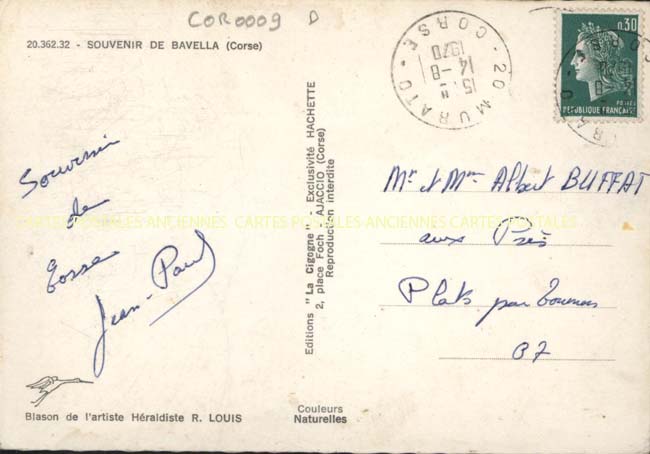 COR0009 D
20.362.32 - SOUVENIR DE BAVELLA (Corse)
20 MURATO - CORSE
15 H
14-8
1970
0,30
POSTES
REPUBLIQUE FRANÇAISE
Souvenir
de
Corse
Jean-Paul
CARTES POSTALES ANCIENNES. CARTES POSTALES ANCIENNES. CARTES POSTALES
Editions "La Cigogne" - Exclusivité HACHETTE
2, place Foch - AJACCIO (Corse)
Reproduction interdite
Mr et Mme Albert BUFFAT
aux Prés
Plats par Tournon
07
Blason de l'artiste Héraldiste R. LOUIS
Couleurs
Naturelles